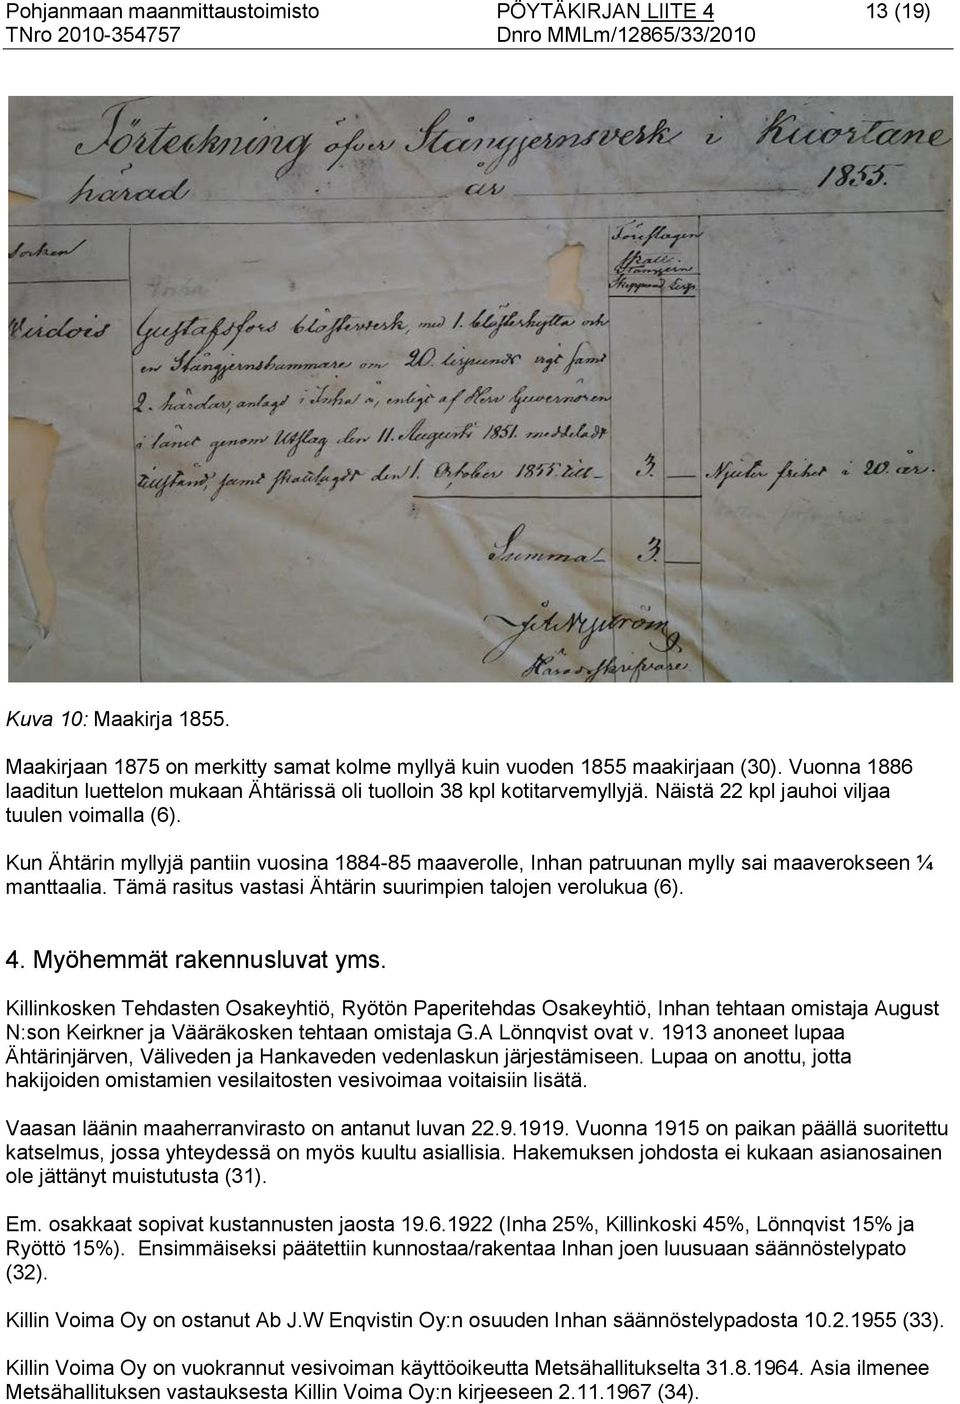 Pohjanmaan maanmittaustoimisto PÖYTÄKIRJAN LIITE 4 13 (19)
TNro 2010-354757 Dnro MMLm/12865/33/2010
Förteckning öfver Stångjernsverk i Kuortane
härad år 1855.
Socken
Föreslagen
skatt.
Stångjern
Skeppund Lisp.
Wirdois
Gustafsfors blästerverk, med 1. blästerhytta och
en Stångjernshammare om 20. lispunds vigt samt
2. härdar, anlagd i Inha å, enligt af Herr Guvernören
i länet genom Utslag den 11. Augusti 1851. meddeladt
tillstånd, samt skattlagdt den 1. October 1855. till 3. — Njuter frihet i 20. år.
Summa 3. —
Nyström
Häradsskrifvare
Kuva 10: Maakirja 1855.
Maakirjaan 1875 on merkitty samat kolme myllyä kuin vuoden 1855 maakirjaan (30). Vuonna 1886
laaditun luettelon mukaan Ähtärissä oli tuolloin 38 kpl kotitarvemyllyjä. Näistä 22 kpl jauhoi viljaa
tuulen voimalla (6).
Kun Ähtärin myllyjä pantiin vuosina 1884-85 maaverolle, Inhan patruunan mylly sai maaverokseen ¼
manttaalia. Tämä rasitus vastasi Ähtärin suurimpien talojen verolukua (6).
4. Myöhemmät rakennusluvat yms.
Killinkosken Tehdasten Osakeyhtiö, Ryötön Paperitehdas Osakeyhtiö, Inhan tehtaan omistaja August
N:son Keirkner ja Vääräkosken tehtaan omistaja G.A Lönnqvist ovat v. 1913 anoneet lupaa
Ähtärinjärven, Väliveden ja Hankaveden vedenlaskun järjestämiseen. Lupaa on anottu, jotta
hakijoiden omistamien vesilaitosten vesivoimaa voitaisiin lisätä.
Vaasan läänin maaherranvirasto on antanut luvan 22.9.1919. Vuonna 1915 on paikan päällä suoritettu
katselmus, jossa yhteydessä on myös kuultu asiallisia. Hakemuksen johdosta ei kukaan asianosainen
ole jättänyt muistutusta (31).
Em. osakkaat sopivat kustannusten jaosta 19.6.1922 (Inha 25%, Killinkoski 45%, Lönnqvist 15% ja
Ryöttö 15%). Ensimmäiseksi päätettiin kunnostaa/rakentaa Inhan joen luusuaan säännöstelypato
(32).
Killin Voima Oy on ostanut Ab J.W Enqvistin Oy:n osuuden Inhan säännöstelypadosta 10.2.1955 (33).
Killin Voima Oy on vuokrannut vesivoiman käyttöoikeutta Metsähallitukselta 31.8.1964. Asia ilmenee
Metsähallituksen vastauksesta Killin Voima Oy:n kirjeeseen 2.11.1967 (34).